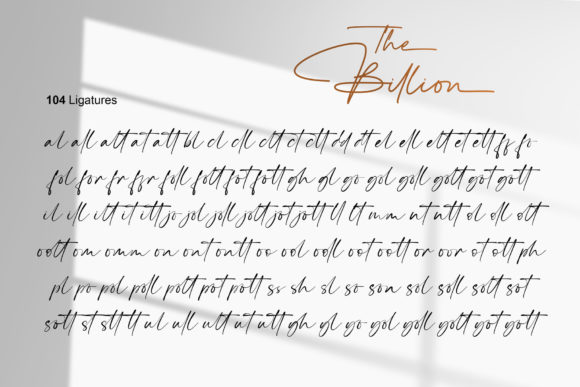 The
Billion
104 Ligatures
al all alt at att bl cl cll clt ct ctt dd dt el ell elt et ett fo
fol for fr foll folt fot fott gh gl go gol goll golt got gott
il ill ilt it itt jo jol joll jolt jot jott ll lt mm nt ntt ol oll olt
oolt om omm on ont ontt oo ool ooll oot oott or oor ot ott ph
pl po pol poll polt pot pott ss sh sl so son sol soll solt sot
sott st stt tt ul ull ult ut utt yh yl yo yol yoll yolt yot yott